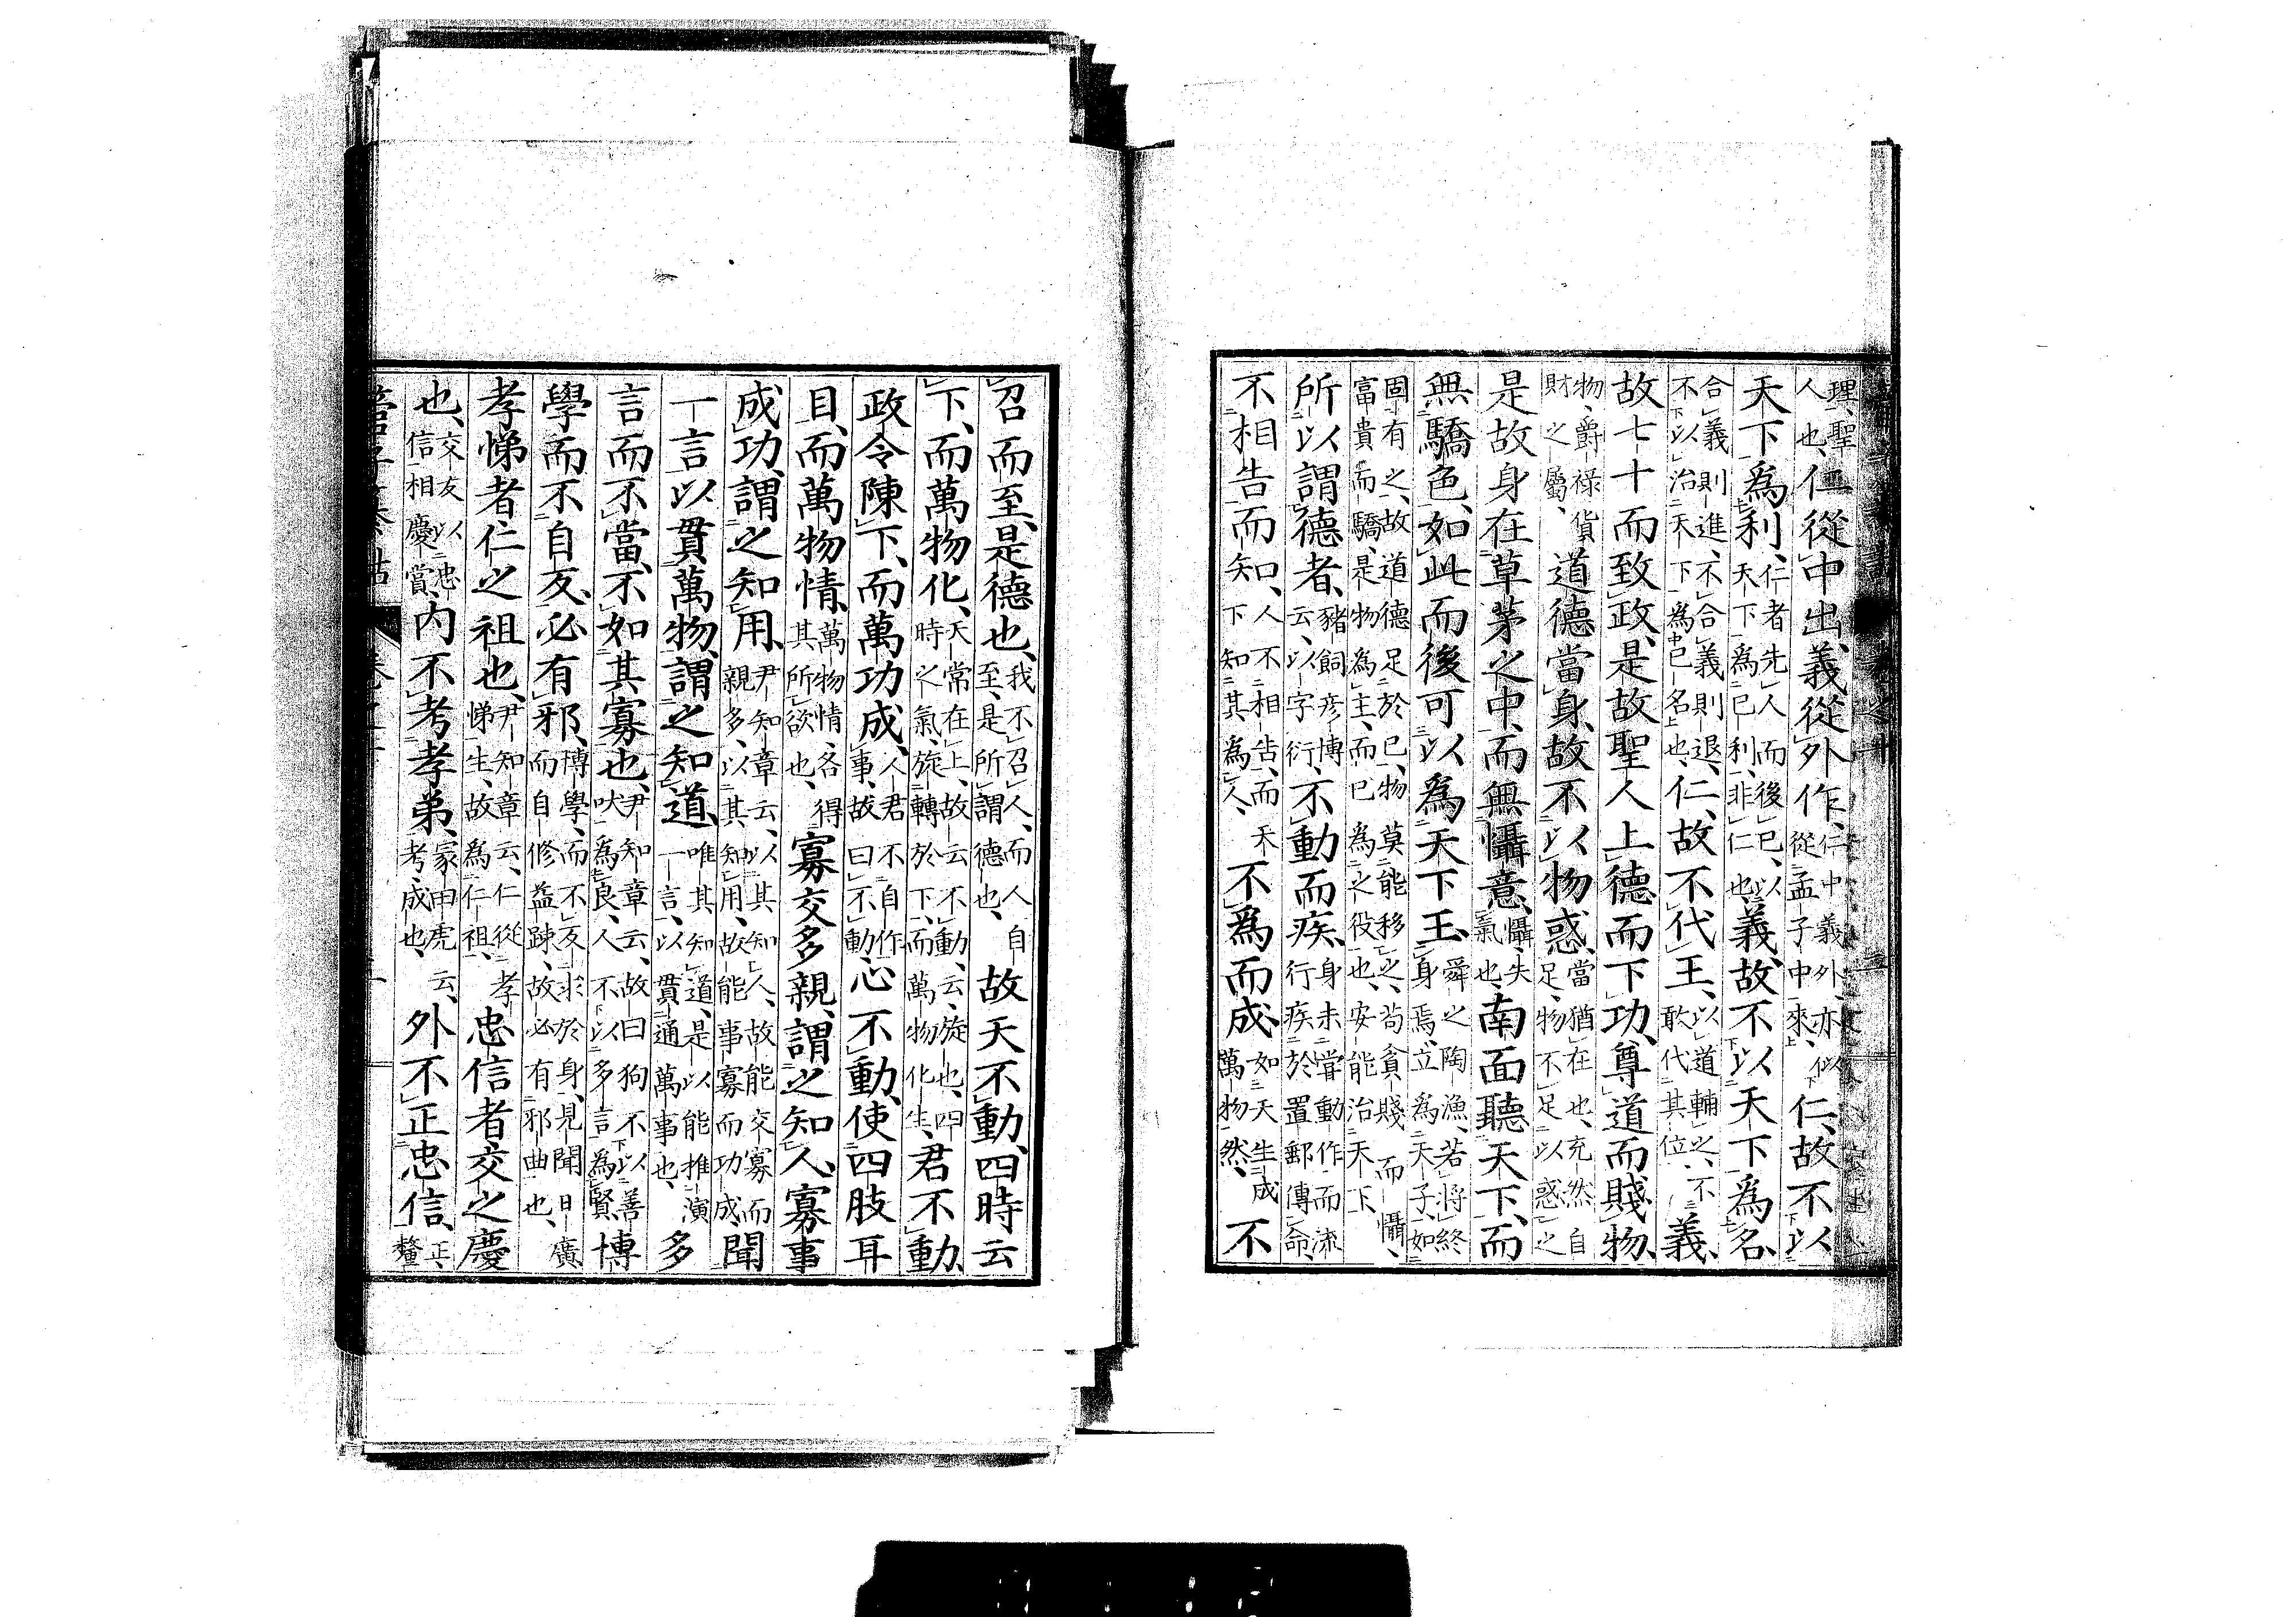 理、聖人也、仁從中出、義從外作、仁中義外、亦似從孟子中來、仁、故不以
天下爲利、仁者先人而後己、以天下爲己利、非仁也、義、故不以天下爲名、
合義則進、不合義則退、不以治天下爲己名也、仁、故不代王、以道輔之、不敢代其位、義、
故七十而致政、是故聖人上德而下功、尊道而賤物、
物、爵祿貨財之屬、道德當身、故不以物惑、當猶在也、充然自足、物不足以惑之
是故身在草茅之中、而無懾意、懾、失氣也、南面聽天下、而
無驕色、如此而後可以爲天下王、舜之陶漁、若將終身焉、立爲天子、如
固有之、故道德足於己、物莫能移之、苟貧賤而懾、富貴而驕、是物爲主、而己爲之役也、安能治天下
所以謂德者、豬飼彥博云、以字衍、不動而疾、身未嘗動作、而流行疾於置郵傳命、
不相告而知、人不相告、而天下知其爲人、不爲而成、如天生成萬物然、不
召而至、是德也、我不召人、而人自至、是所謂德也、故天不動、四時云
下、而萬物化、天常在上、故云不動、云、旋也、四時之氣、旋轉於下、而萬物化生、君不動、
政令陳下、而萬功成、人君不自作事、故曰不動、心不動、使四肢耳
目、而萬物情、萬物情、各得其所欲也、寡交多親、謂之知人、寡事
成功、謂之知用、尹知章云、以其知人、故能交寡而親多、以其知用、故能事寡而功成、聞
一言以貫萬物、謂之知道、唯其知道、是以能推演一言、以貫通萬事也、多
言而不當、不如其寡也、尹知章云、故曰狗不以善吠爲良、人不以多言爲賢、博
學而不自反、必有邪、博學、而不反求於身、見聞日廣而自修益疎、故必有邪曲也、
孝悌者仁之祖也、尹知章云、仁從孝悌生、故爲仁祖、忠信者交之慶
也、交友以忠信相慶賞、內不考孝弟、家田虎云、考、成也、外不正忠信、正、鼇